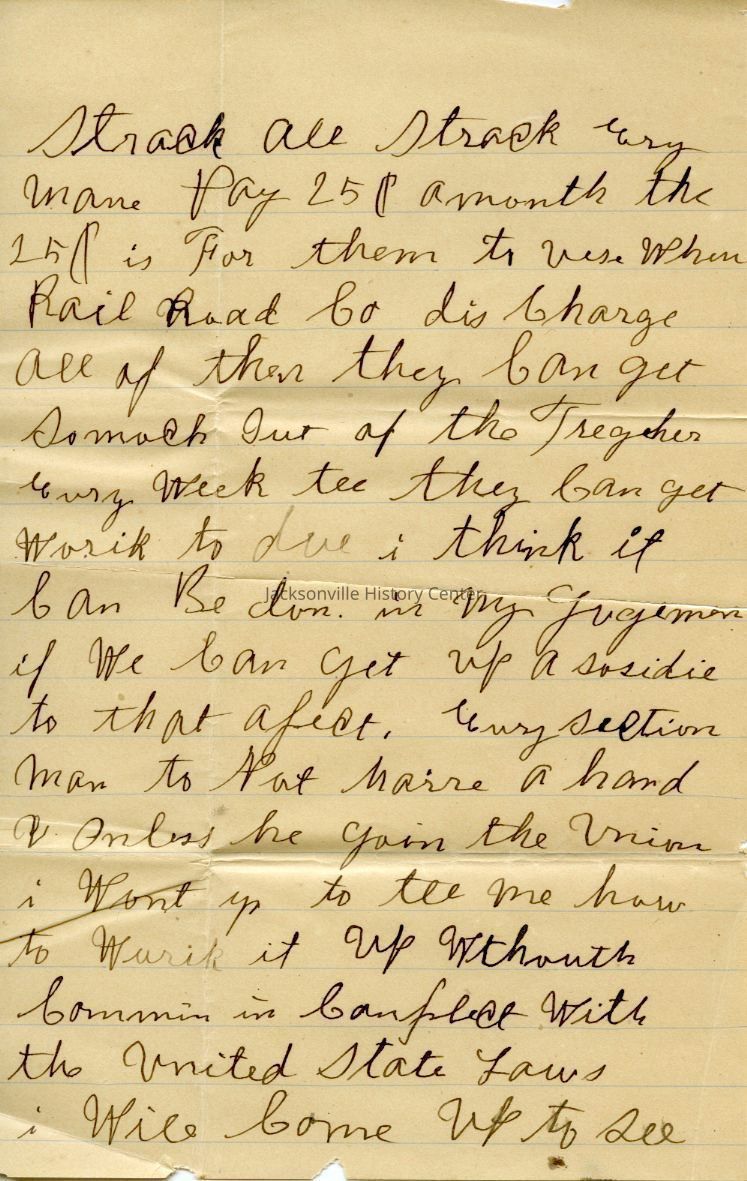 Strack all Strack Evry
mane Pay 25¢ amonth the
25¢ is For them to uese When
Rail Road Co dis Charge
all of then they Can get
Somoch Out of the Tregeher
Evury Week tel they Can get
Worik to due i think it
Can Be don. in my Jugemon
if We Can get up a sosidie
to that afect. Evury section
man to Not harre a hand
Onless he goin the Union
i Wont yo to tell me how
to Wurik it Up Wthouth
Commin in Conflect With
the United State Laws
i Will Come Up to See
Jacksonville History Center